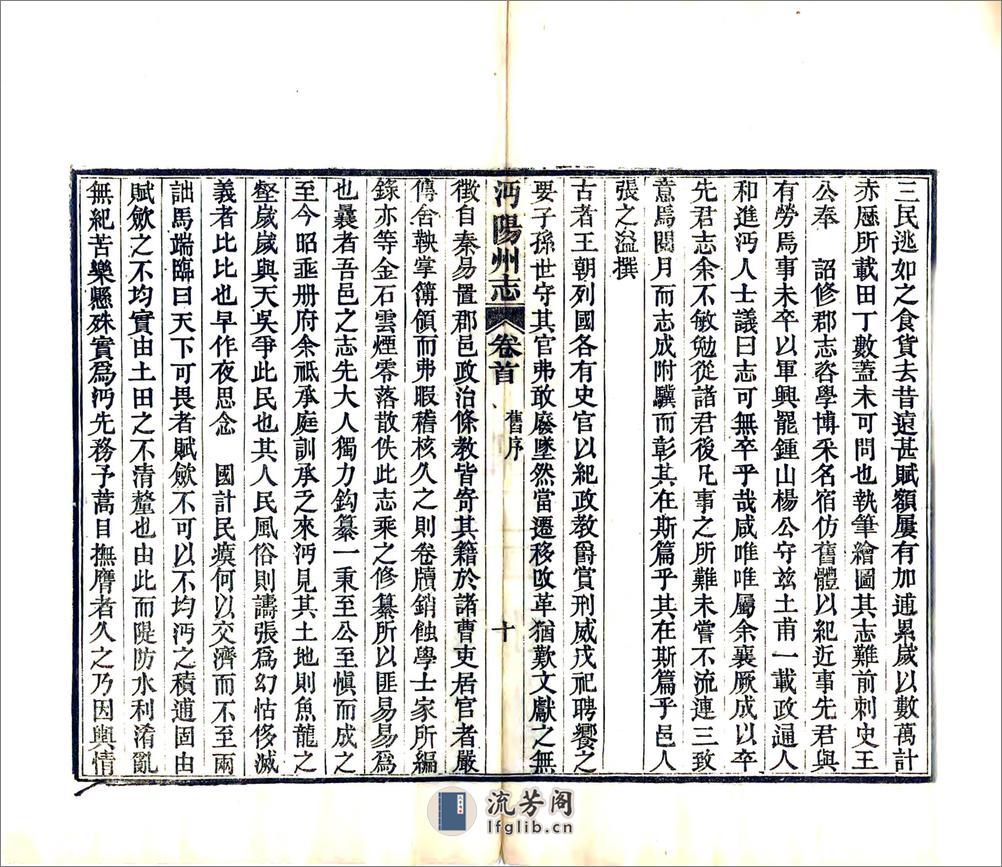 三民逃如之食貨去昔遠甚賦額屢有加逋累歲以數萬計
赤歷所載田丁數蓋未可問也執筆繪圖其志難前刺史王
公奉　詔修郡志咨學博采名宿仿舊體以紀近事先君與
有勞焉事未卒以軍興罷鍾山楊公守茲土甫一載政通人
和進沔人士議曰志可無卒乎哉咸唯唯屬余襄厥成以卒
先君志余不敏勉從諸君後凡事之所難未嘗不流連三致
意焉閱月而志成附驥而彰其在斯篇乎其在斯篇乎邑人
張之溢撰
古者王朝列國各有史官以紀政教爵賞刑威戎祀聘饗之
要子孫世守其官弗敢廢墜然當遷移改革猶歎文獻之無
沔陽州志　卷首　舊序　十
徵自秦易置郡邑政治條教皆寄其籍於諸曹吏居官者嚴
傳舍鞅掌簿領而弗暇稽核久之則卷牘銷蝕學士家所編
錄亦等金石雲煙零落散佚此志乘之修纂所以匪易易爲
也曩者吾邑之志先大人獨力鈎纂一秉至公至慎而成之
至今昭垂册府余祇承庭訓承乏來沔見其土地則魚龍之
壑歲歲與天吳爭此民也其人民風俗則譸張爲幻怙侈滅
義者比比也早作夜思念　國計民瘼何以交濟而不至兩
詘馬端臨曰天下可畏者賦歛不可以不均沔之積逋固由
賦歛之不均實由土田之不清釐也由此而隄防水利淆亂
無紀苦樂懸殊實爲沔先務予蒿目撫膺者久之乃因輿情
流芳阁
lfglib.cn